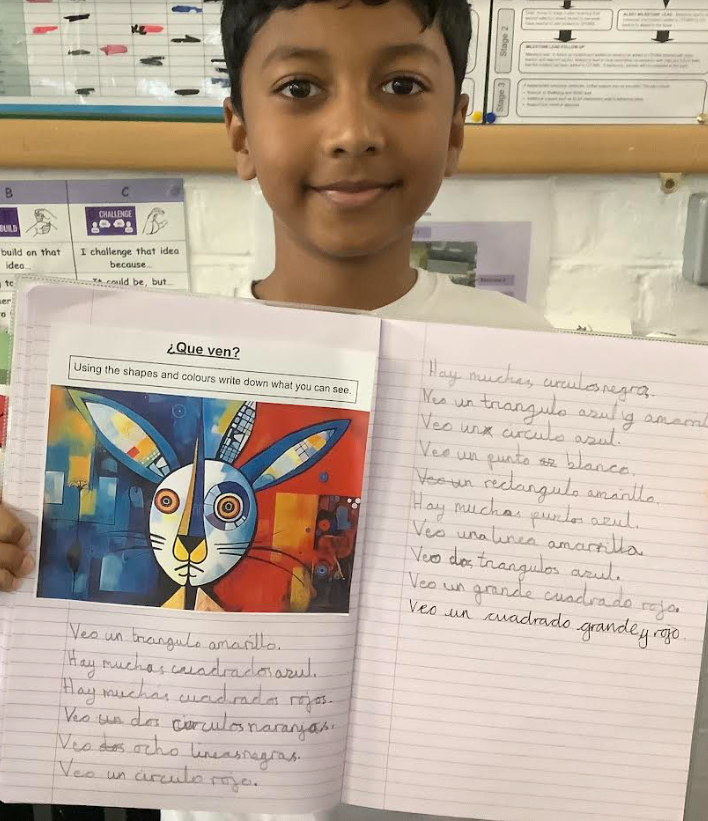 Stage 2
MILESTONE LEAD FOLLOW UP
Stage 3
B
C
BUILD
CHALLENGE
build on that
idea...
I challenge that idea
because...
It could be, but...
¿Que ven?
Using the shapes and colours write down what you can see.
Veo un triangulo amarillo.
Hay muchas cuadrados azul.
Hay muchas cuadrados rojos.
Veo un dos circulos naranjas.
Veo dos ocho lineas negras.
Veo un circulo rojo.
Hay muchas circulos negros.
Veo un triangulo azul y amarill
Veo un circulo azul.
Veo un punto blanco.
Veo un rectangulo amarillo.
Hay muchas puntos azul.
Veo una linea amarilla
Veo dos triangulos azul.
Veo un grande cuadrado rojo.
Veo un cuadrado grande y rojo.